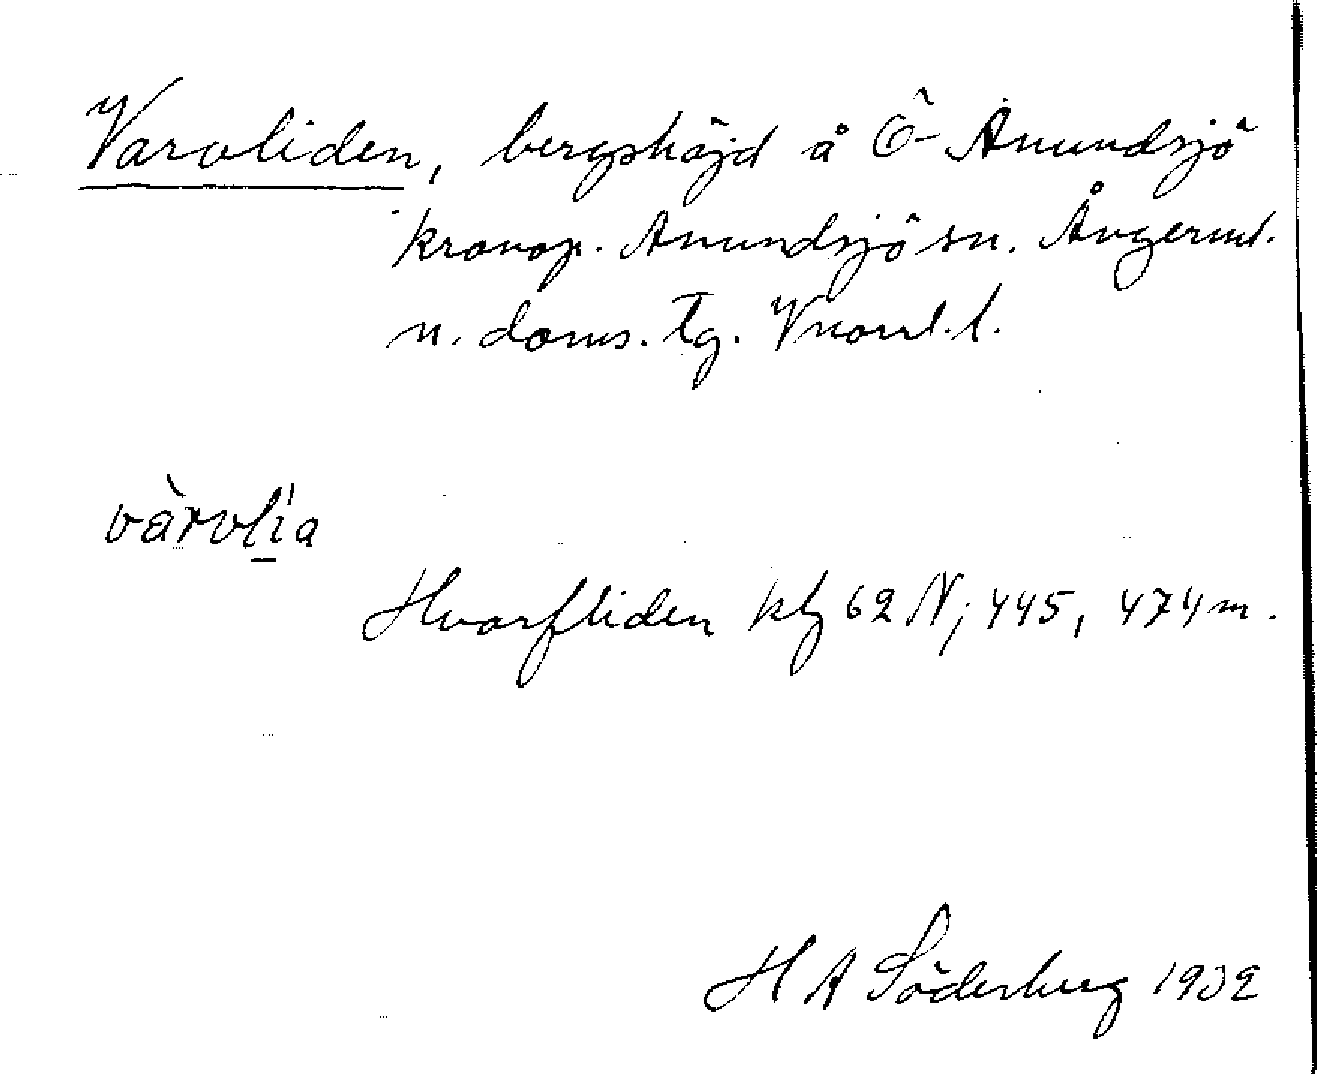 Varvliden, bergshöjd å Ö Anundsjö
kronop. Anundsjö sn. Ångerml.
n. doms. tg. Vnorrl. l.
vàrvlìa
Hvarfliden kbl 62 N; 445, 474 m.
H A Söderberg 1932